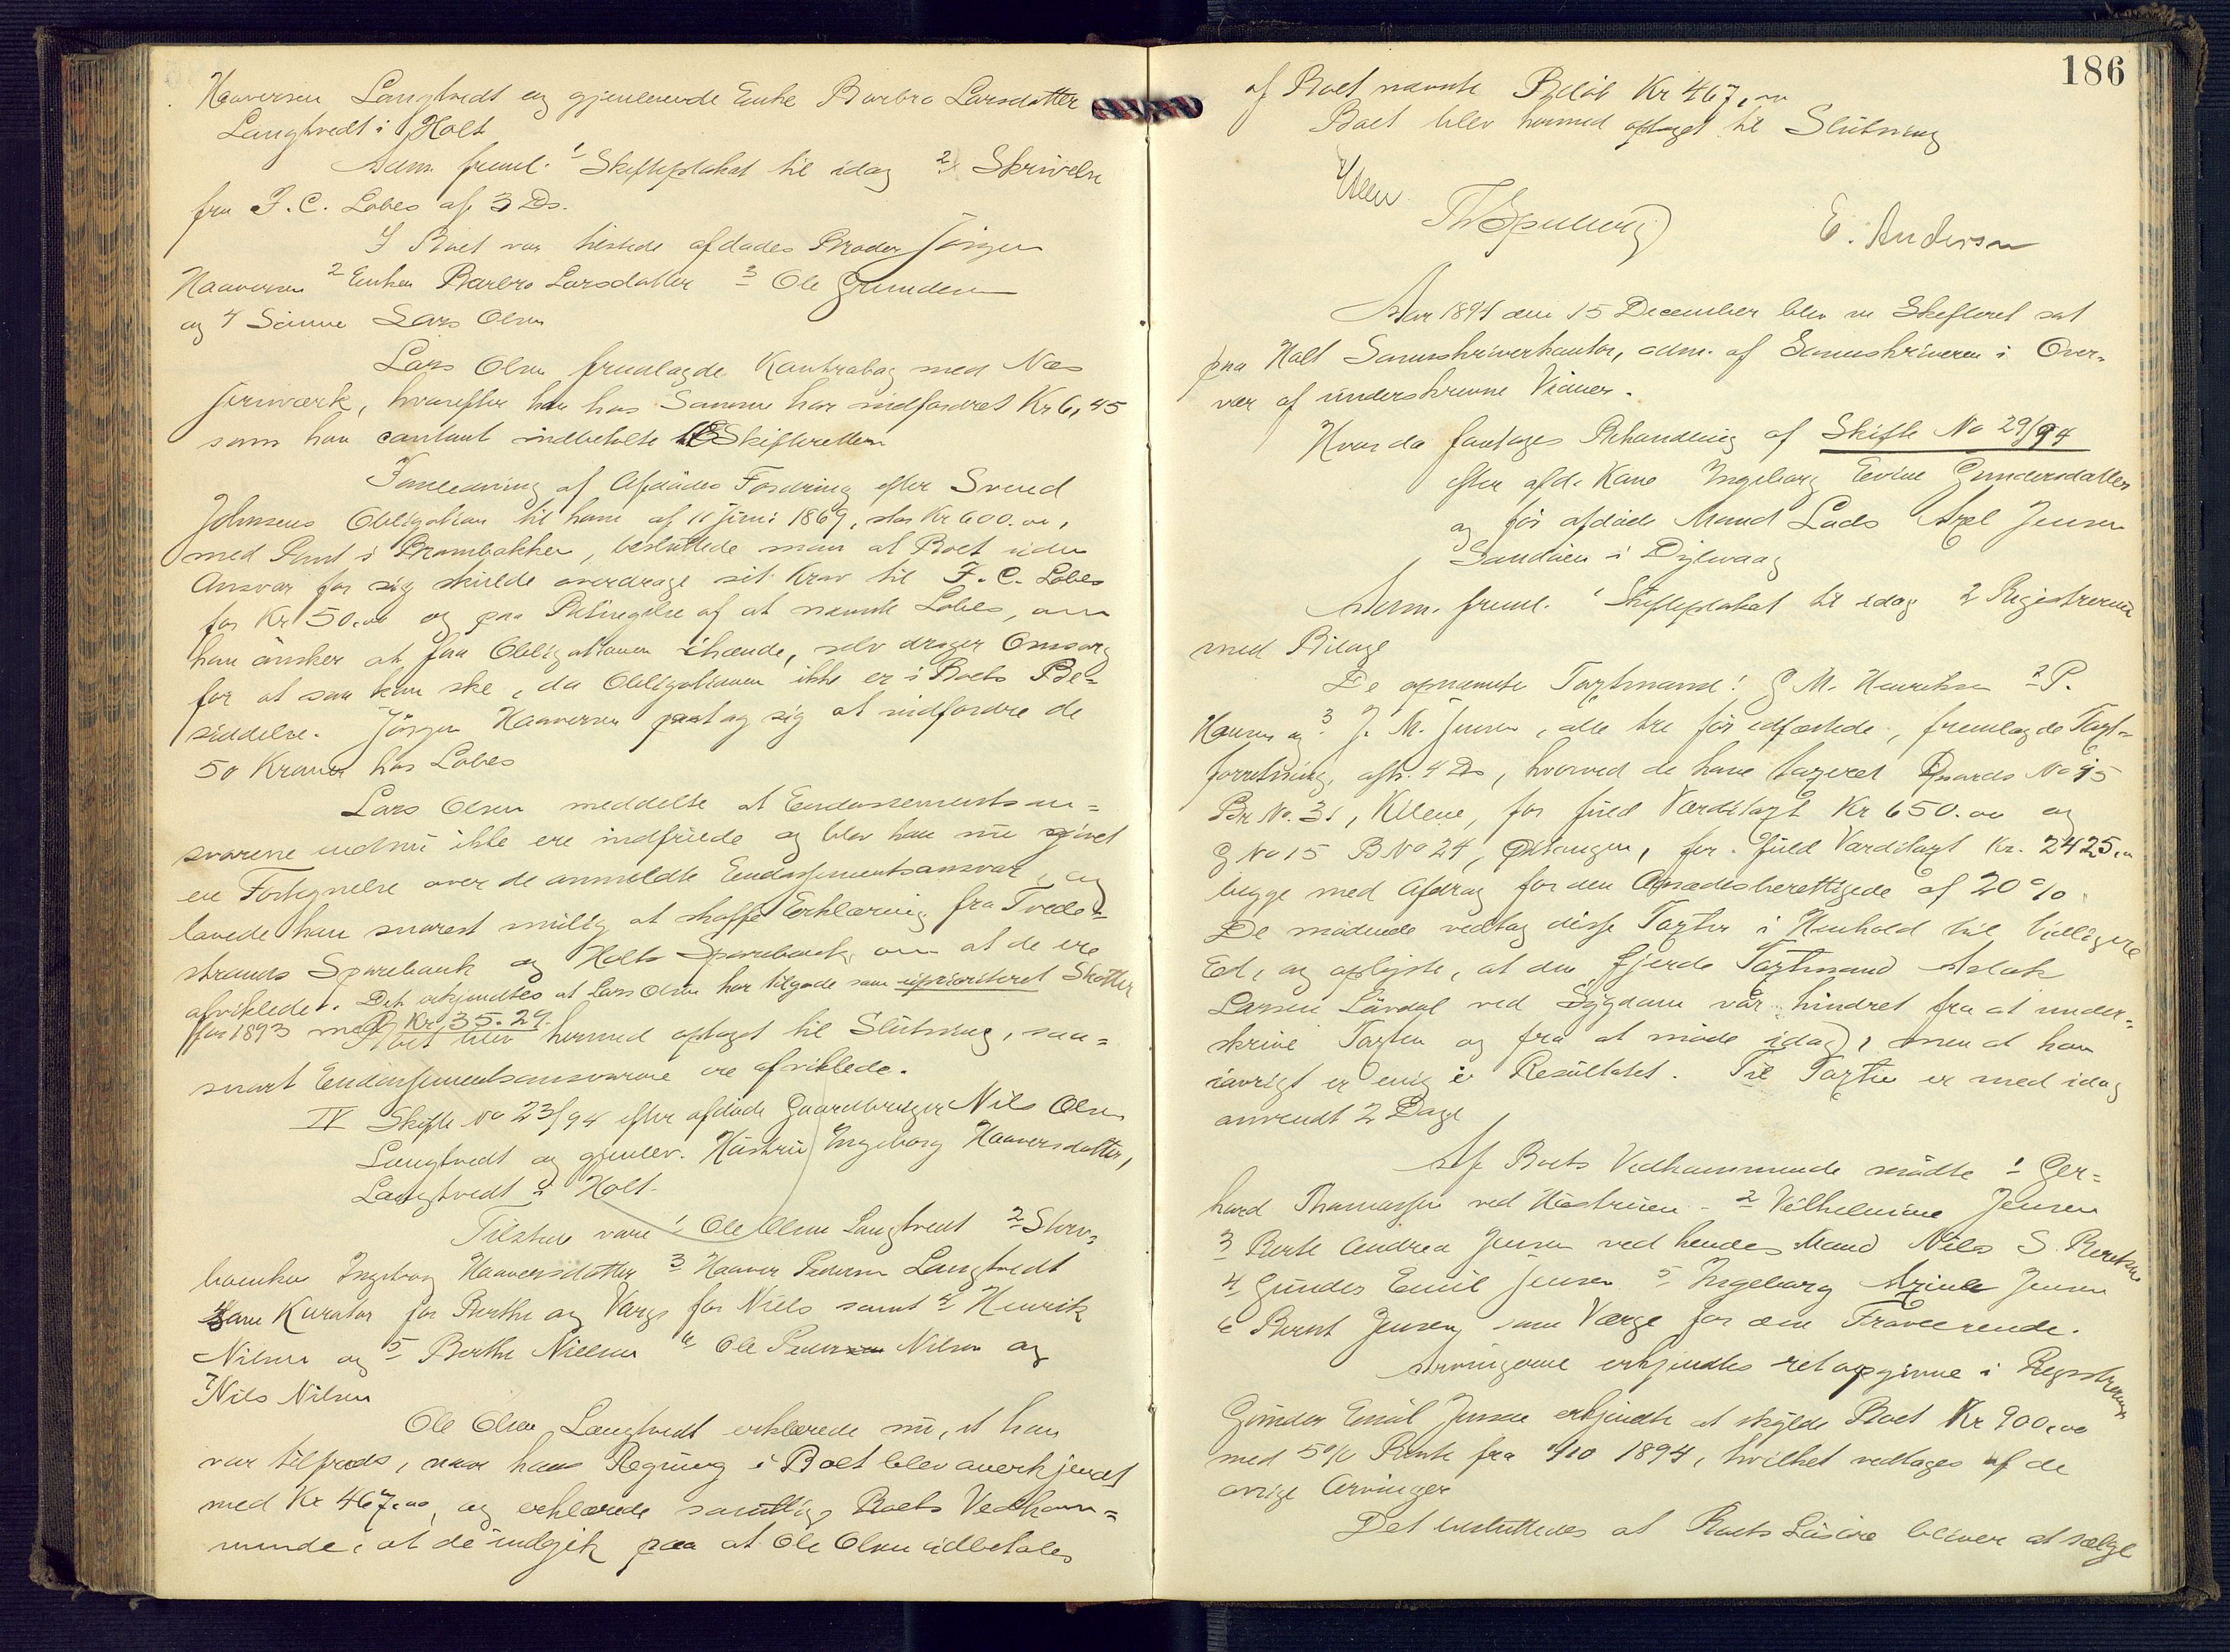 Haaversen Langtvedt og gjenlevende Enke Barbro Larsdatter
Langtvedt i Holt
Adm. freml. 1 Skifteplakat til idag 2 Skrivelse
fra F. C. Lobes af 3 Ds.
I Boet var tilstede afdødes Broder Jörgen
Haaversen 2 Enken Barbro Larsdatter 3 Ole Gundersen
og 4 Sönnen Lars Olsen
Lars Olsen fremlagde Kontrabog med Næs
Jernværk, hvorefter han hos Samme har indfordret Kr 6,45
som han contant indbetalte til Skifteretten
I Anledning af Afdödes Fordring efter Svend
Johnsens Obligation til ham af 11 Juni 1869, stor Kr 600.00,
med Pant i Brombakken, besluttede man at Boet uden
Ansvar for sig skulde overdrage sit Krav til F. C. Lobes
for Kr 50.00 og paa Betingelse af at nævnte Lobes, om
han önsker at faa Obligationen ihænde, selv drager Omsorg
for at saa kan ske, da Obligationen ikke er i Boets Be-
siddelse. Jörgen Haaversen paatog sig at indfordre de
50 Kroner hos Lobes
Lars Olsen meddelte at Endossementsan=
svarene endnu ikke ere indfriede og blev han nu givet
en Fortegnelse over de anmeldte Endossementsansvar, og
lovede han snarest mulig at skaffe Erklæring fra Tvede-
strands Sparebank og Holts Sparebank om at de ere
afviklede. Det erkjendtes at Lars Olsen har tilgode som uprioriteret Skatter
for 1893 med Kr 35.29.
Boet blev hermed optaget til Slutning, saa=
snart Endossementsansvarene ere afviklede.
IV Skifte No 23/94 efter afdöde Gaardbruger Nils Olsen
Langtvedt og gjenlev. Hustru Ingeborg Haaversdatter,
Langtvedt i Holt.
Tilstede vare 1 Ole Olsen Langtvedt 2 Sterv-
boenken Ingeborg Haaversdatter 3 Haaver Pedersen Langtvedt
som Kurator for Berthe og Værge for Niels samt 4 Henrik
Nilsen og 5 Berthe Nielsen 6 Ole Pedersen Nilsen og
7 Nils Nilsen
Ole Olsen Langtvedt erklærede nu, at han
var tilfreds, naar hans Regning i Boet blev anerkjendt
med Kr 467.00, og erklærede samtlige Boets Vedkom=
mende, at de indgik paa at Ole Olsen udbetales
186
af Boet nævnte Belöb Kr 467,00
Boet blev hermed optaget til Slutning
E. Andersen
Aar 1894 den 15 December blev en Skifteret sat
paa Holt Sorenskriverkontor, adm. af Sorenskriveren i Over-
vær af underskrevne Vidner.
Hvor da foretoges Behandling af Skifte No 29/94
efter afd. Kone Ingeborg Gundersdatter
og för afdöde Mand Lods Axel Jensen
Sandöen i Dybvaag
Adm. freml. 1 Skifteplakat til idag 2 Registrering
med Bilage
De opnævnte Taxtmænd: G M. Henriksen 2 P.
Hansen og 3 J. M. Jensen, alle tre för edfæstede, fremlagde Taxt-
forretning, afh. 4 Ds, hvorved de have taxeret Gaards No 15
Br No. 31, Kilene, for fuld Værditaxt Kr 650.00 og
G No 15 B No 24, for fuld Værditaxt Kr. 2425,00
begge med Afdrag for den Aasædesberettigede af 20%.
De mödende vedtog disse Taxter i Henhold til tidligere
Ed, og oplyste, at den fjerde Taxtmand Aslak
Larsen Lövdal ved Sygdom var hindret fra at under-
skrive Taxten og fra at möde idag, men at han
iövrigt er enig i Resultatet. Til Taxten er med idag
anvendt 2 Dage
Af Boets Vedkommende mödte 1 Ger-
hard Thomassen ved Hustruen - 2 Vilhelmine Jensen
3 Berte Andrea Jensen ved hendes Mand Nils S. Berntsen
4 Gunder Emil Jensen 5 Ingeborg Axine Jensen
6 Bernt Jensen som Værge for den Fraværende.
Arvingerne erkjendtes ret opgivne i Registreringen
Gunder Emil Jensen erkjendte at skylde Boet Kr 900,00
med 5% Rente fra 1/10 1894, hvilket vedtoges af de
övrige Arvinger
Det besluttedes at Boets Lösöre bliver at sælge